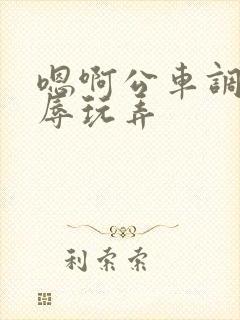 嗯啊公車調
辱玩弄
利索索